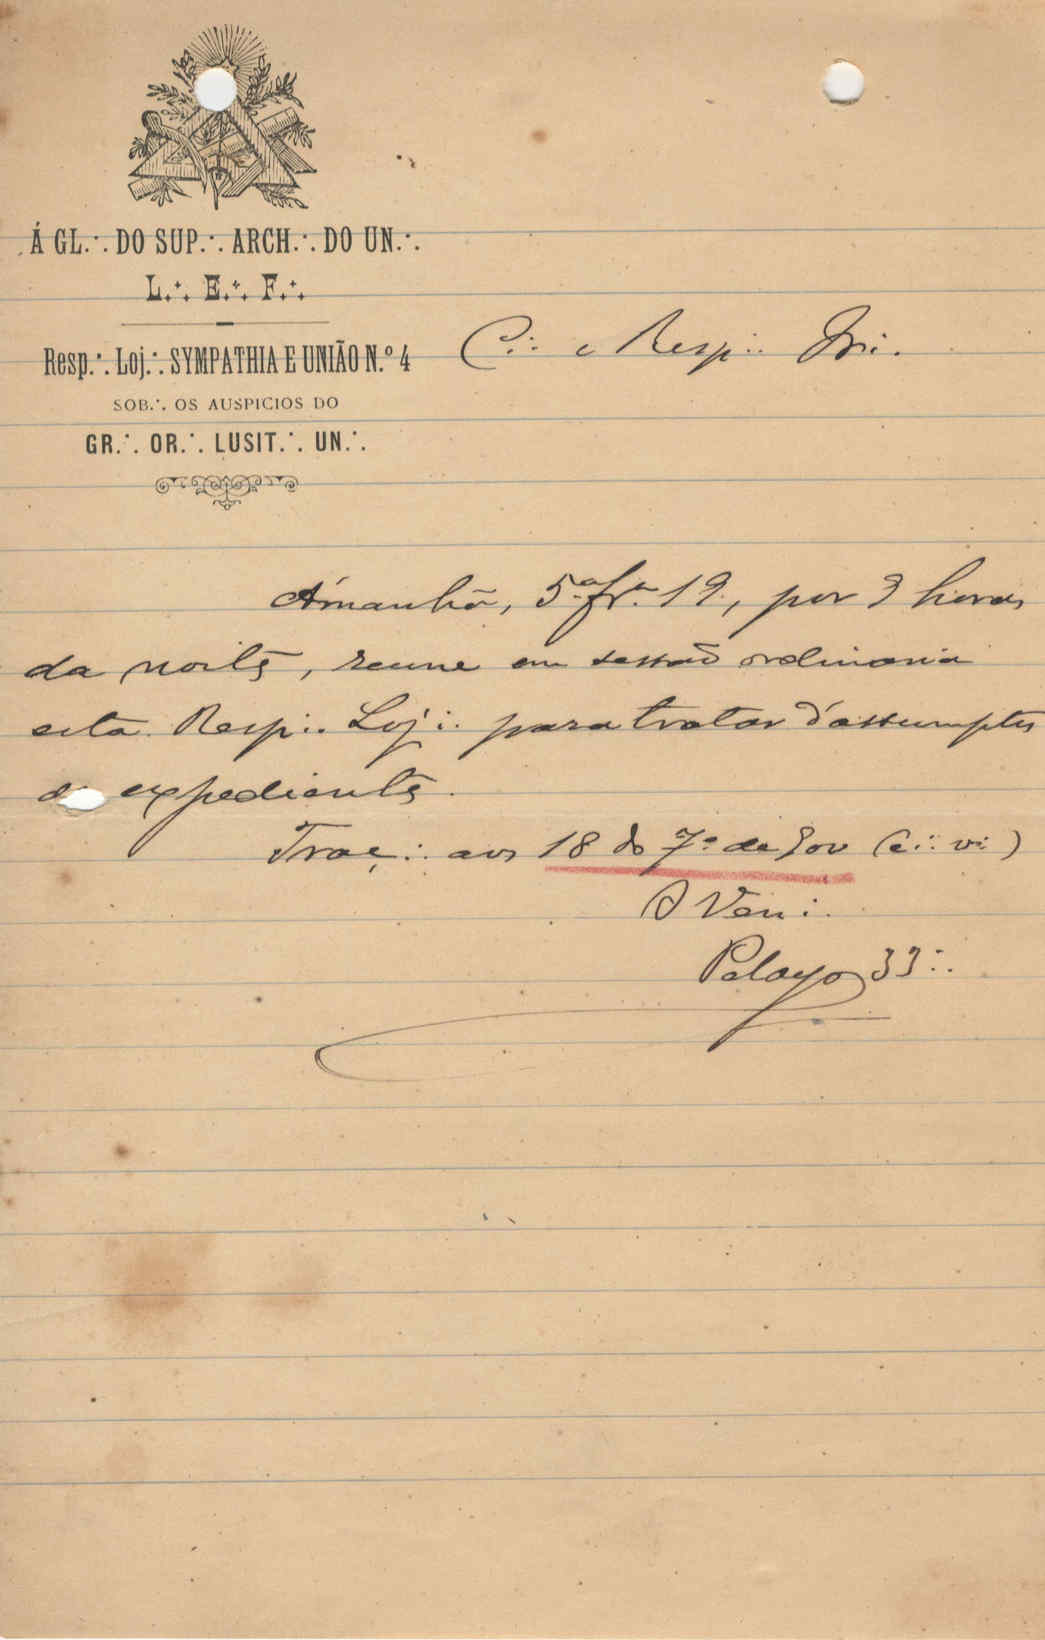 Á GL.∴ DO SUP.∴ ARCH.∴ DO UN.∴
L.∴ E.∴ F.∴
Resp.∴ Loj.∴ SYMPATHIA E UNIÃO N.º 4
SOB.∴ OS AUSPICIOS DO
GR.∴ OR.∴ LUSIT.∴ UN.∴
C∴ e Resp∴ Ir∴
Amanhã, 5.ª fr.ª 19, por 9 horas
da noite, reune em sessão ordinaria
esta Resp∴ Loj∴ para tratar d'assumptos
expediente.
Traç∴ aos 18 do 7º de 900 (e∴ v∴)
O Ven∴
Pelayo 33∴